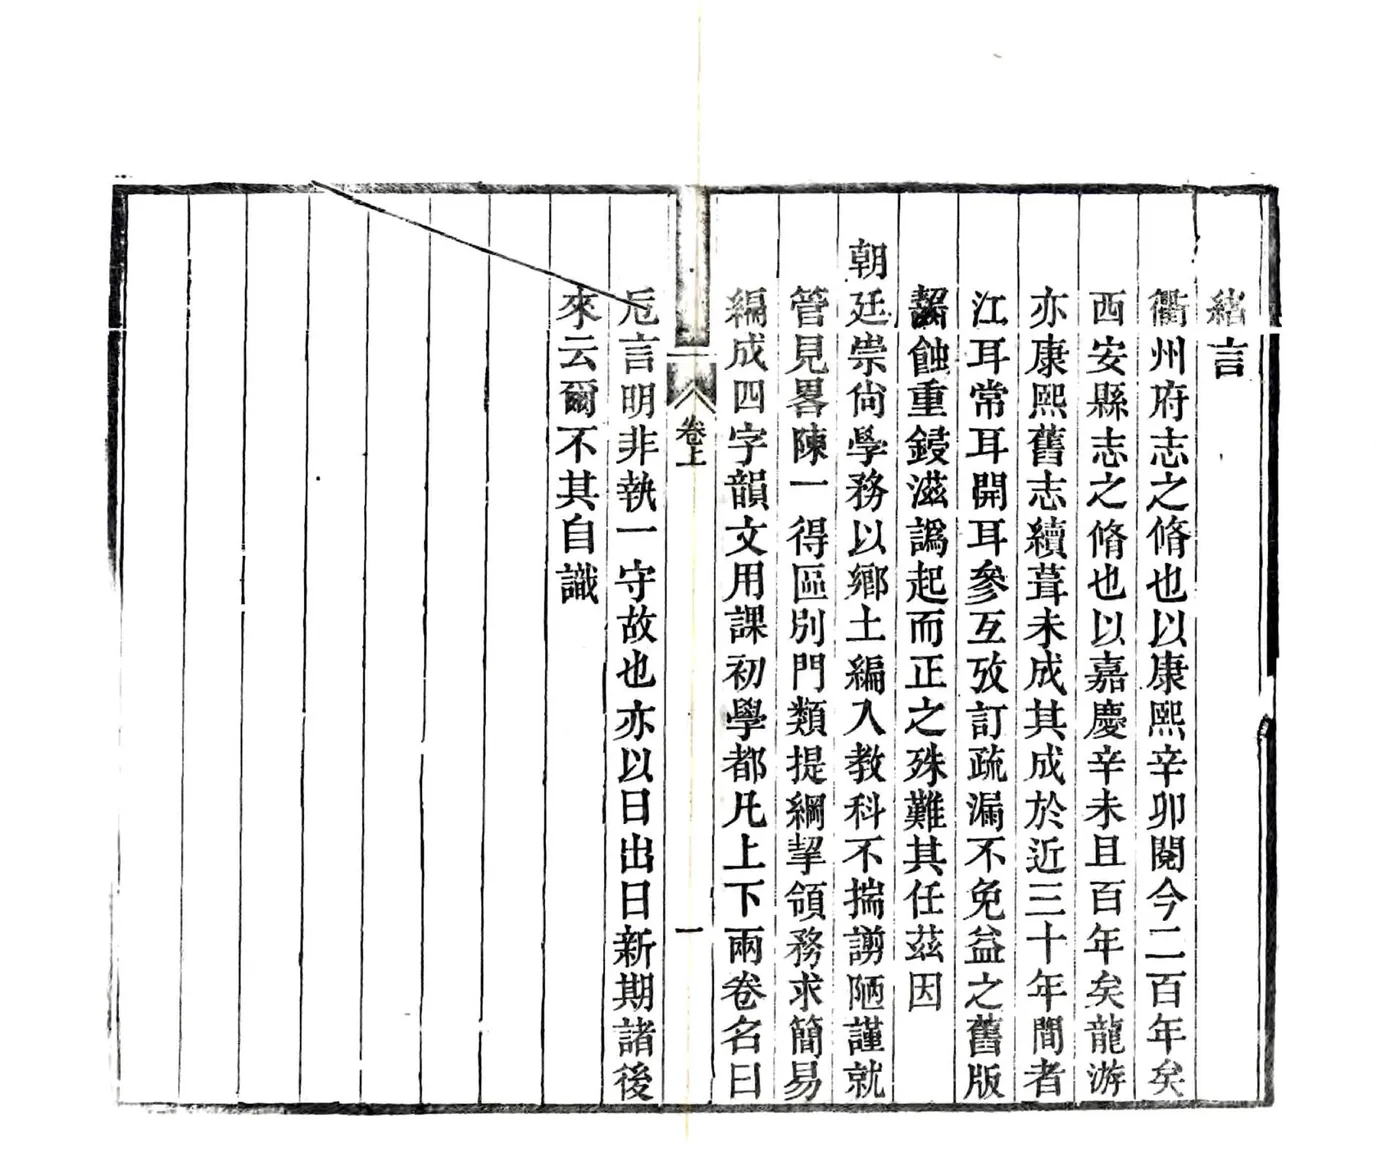 緒言
衢州府志之脩也以康熙辛卯閱今二百年矣
西安縣志之脩也以嘉慶辛未且百年矣龍游
亦康熙舊志續葺未成其成於近三十年間者
江耳常耳開耳參互攷訂疏漏不免益之舊版
蝕重鋟滋譌起而正之殊難其任茲因
朝廷崇尙學務以鄕土編入教科不揣謭陋謹就
管見畧陳一得區別門類提綱挈領務求簡易
編成四字韻文用課初學都凡上下兩卷名曰
卮言明非執一守故也亦以日出日新期諸後
來云爾不其自識
卷上
一